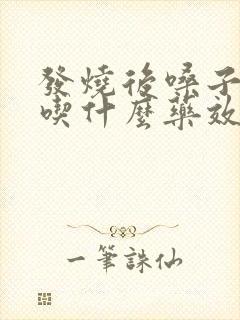 發燒後嗓子
喫什麼藥效
一筆誅仙